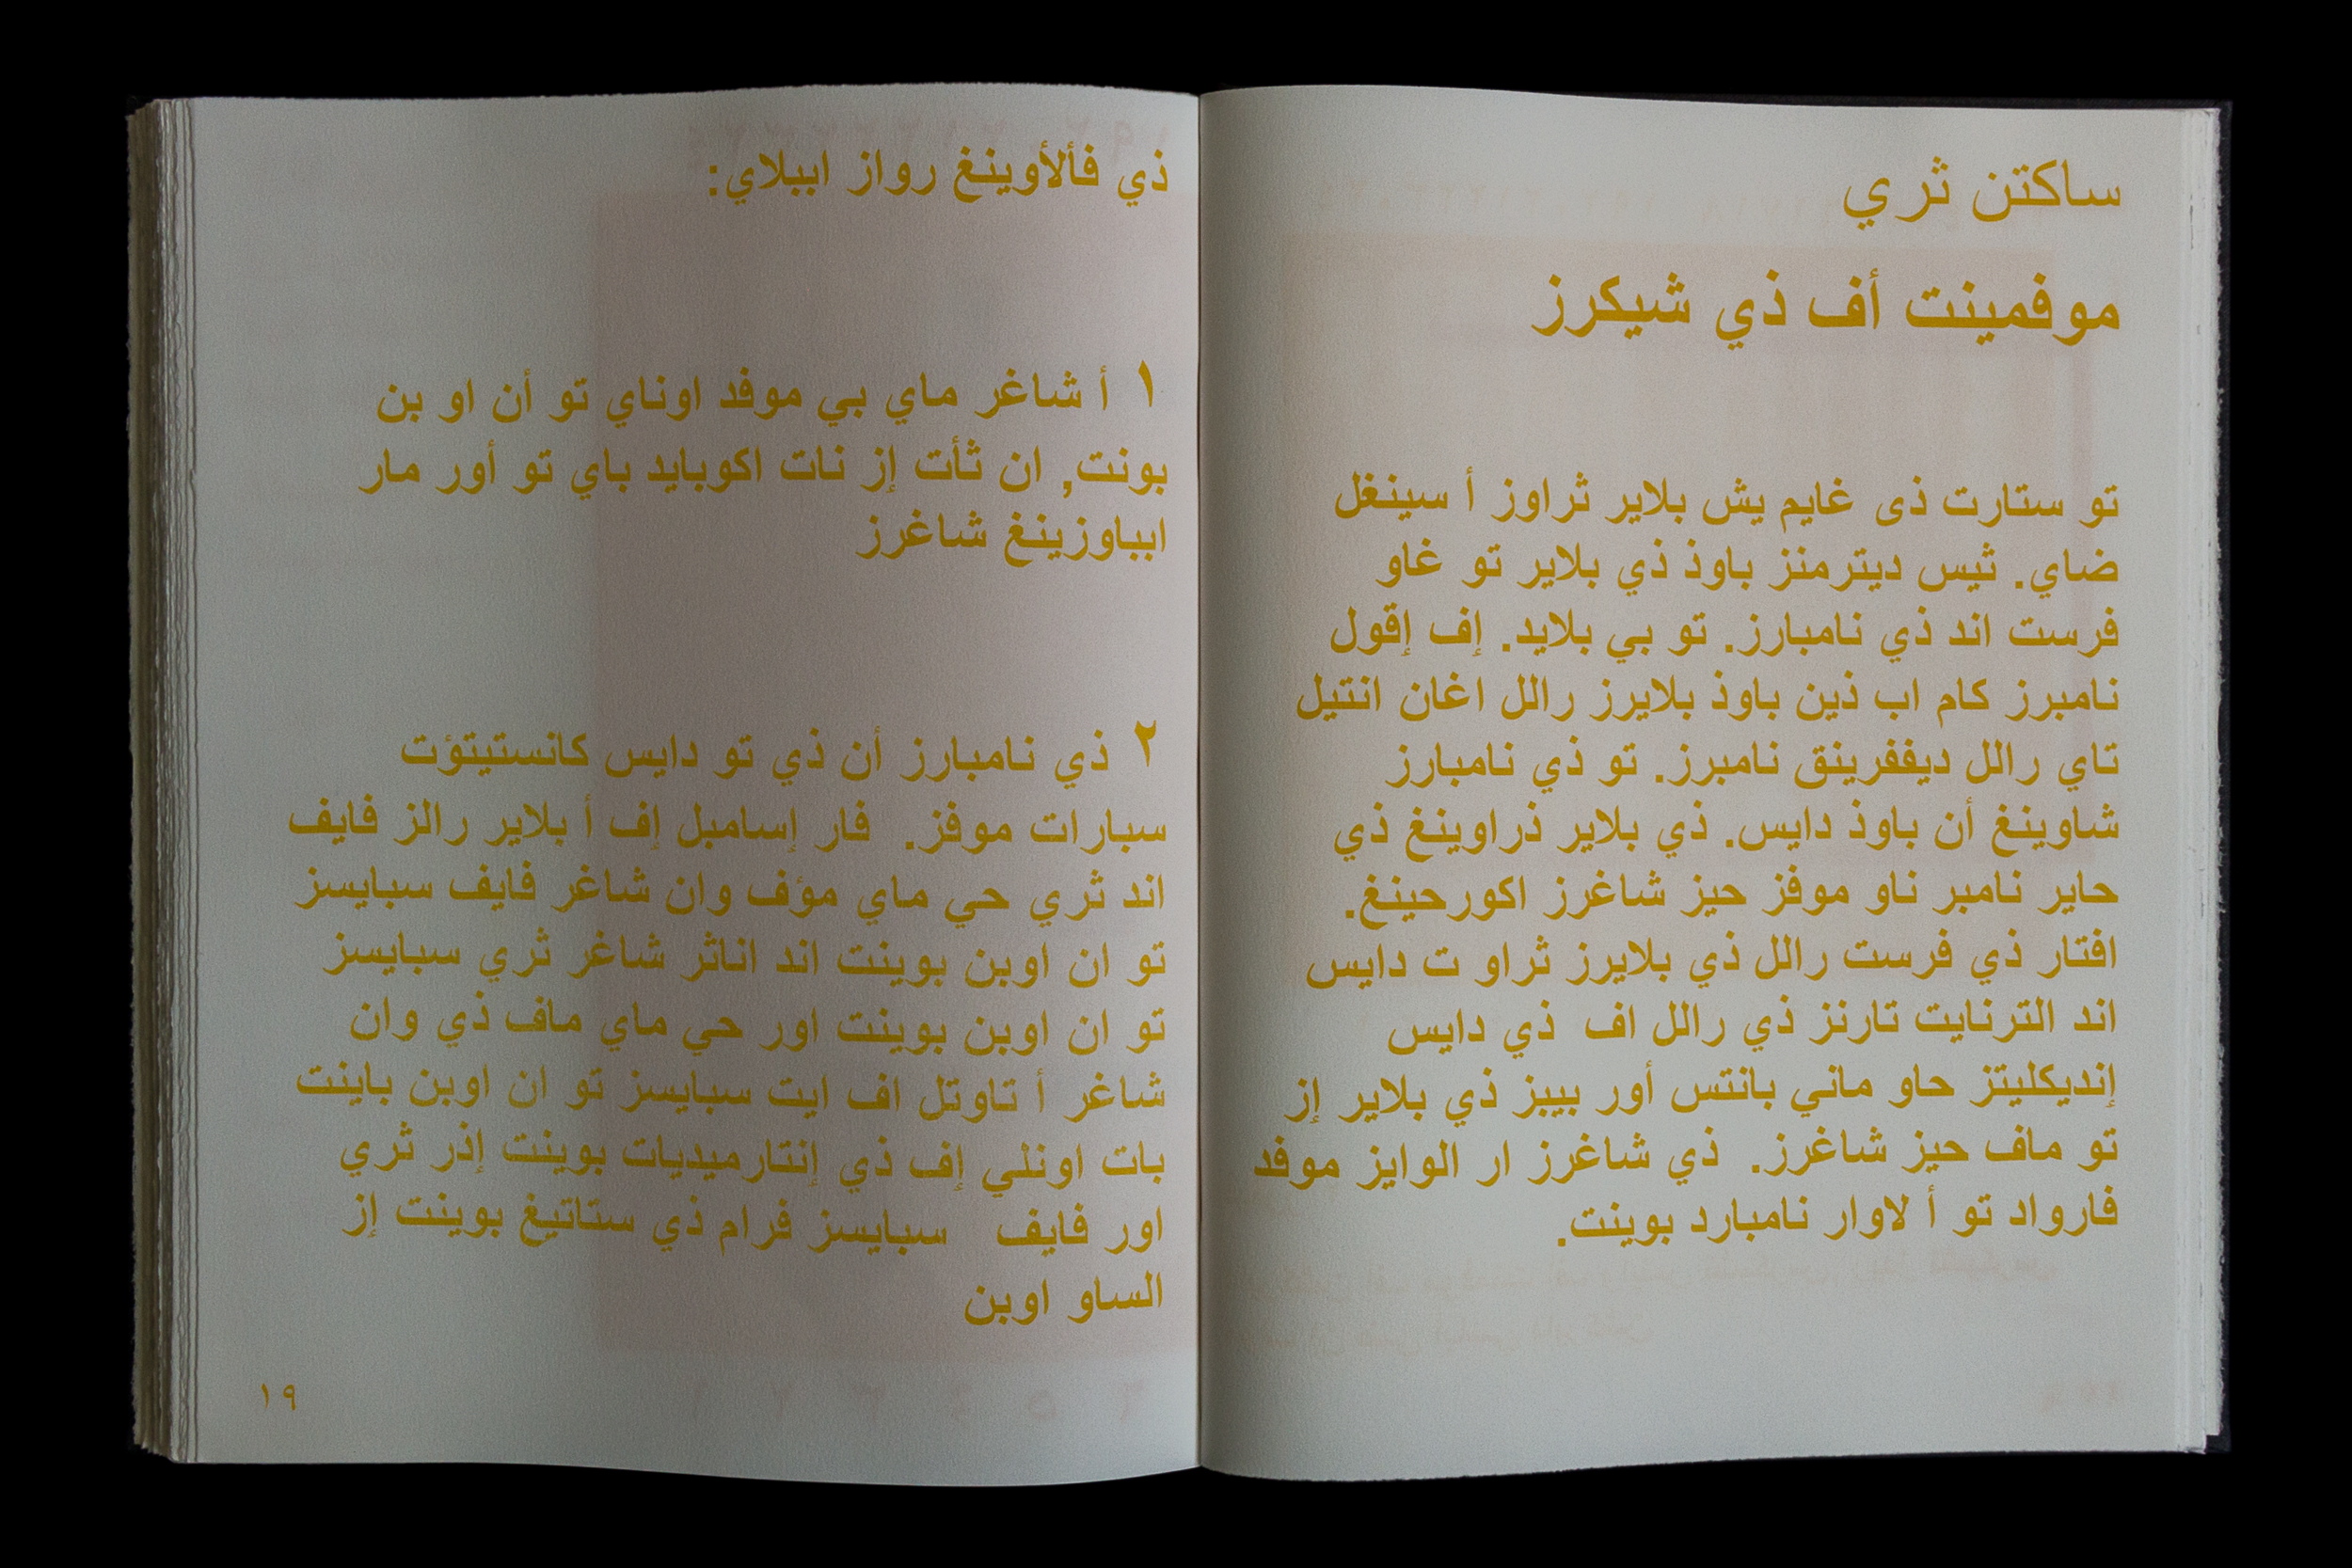 ساكتن ثري
موفمينت أف ذي شيكرز
تو ستارت ذى غايم يش بلاير ثراوز أ سينغل
ضاي. ثيس ديترمنز باوذ ذي بلاير تو غاو
فرست اند ذي نامبارز. تو بي بلايد. إف إقول
نامبرز كام اب ذين باوذ بلايرز رالل اغان انتيل
تاي رالل ديففرينق نامبرز. تو ذي نامبارز
شاوينغ أن باوذ دايس. ذي بلاير ذراوينغ ذي
حاير نامبر ناو موفز حيز شاغرز اكورحينغ.
افتار ذي فرست رالل ذي بلايرز ثراو ت دايس
اند الترنايت تارنز ذي رالل اف ذي دايس
إنديكليتز حاو ماني بانتس أور بيبز ذي بلاير إز
تو ماف حيز شاغرز. ذي شاغرز ار الوايز موفد
فارواد تو أ لاوار نامبارد بوينت.
ذي فألأوينغ رواز اببلاي:
١ أ شاغر ماي بي موفد اوناي تو أن او بن
بونت, ان ثأت إز نات اكوبايد باي تو أور مار
ابباوزينغ شاغرز
٢ ذي نامبارز أن ذي تو دايس كانستيتؤت
سبارات موفز. فار إسامبل إف أ بلاير رالز فايف
اند ثري حي ماي مؤف وان شاغر فايف سبايسز
تو ان اوبن بوينت اند اناثر شاغر ثري سبايسز
تو ان اوبن بوينت اور حي ماي ماف ذي وان
شاغر أ تاوتل اف ايت سبايسز تو ان اوبن باينت
بات اونلي إف ذي إنتارميديات بوينت إذر ثري
اور فايف سبايسز فرام ذي ستاتيغ بوينت إز
الساو اوبن
١٩